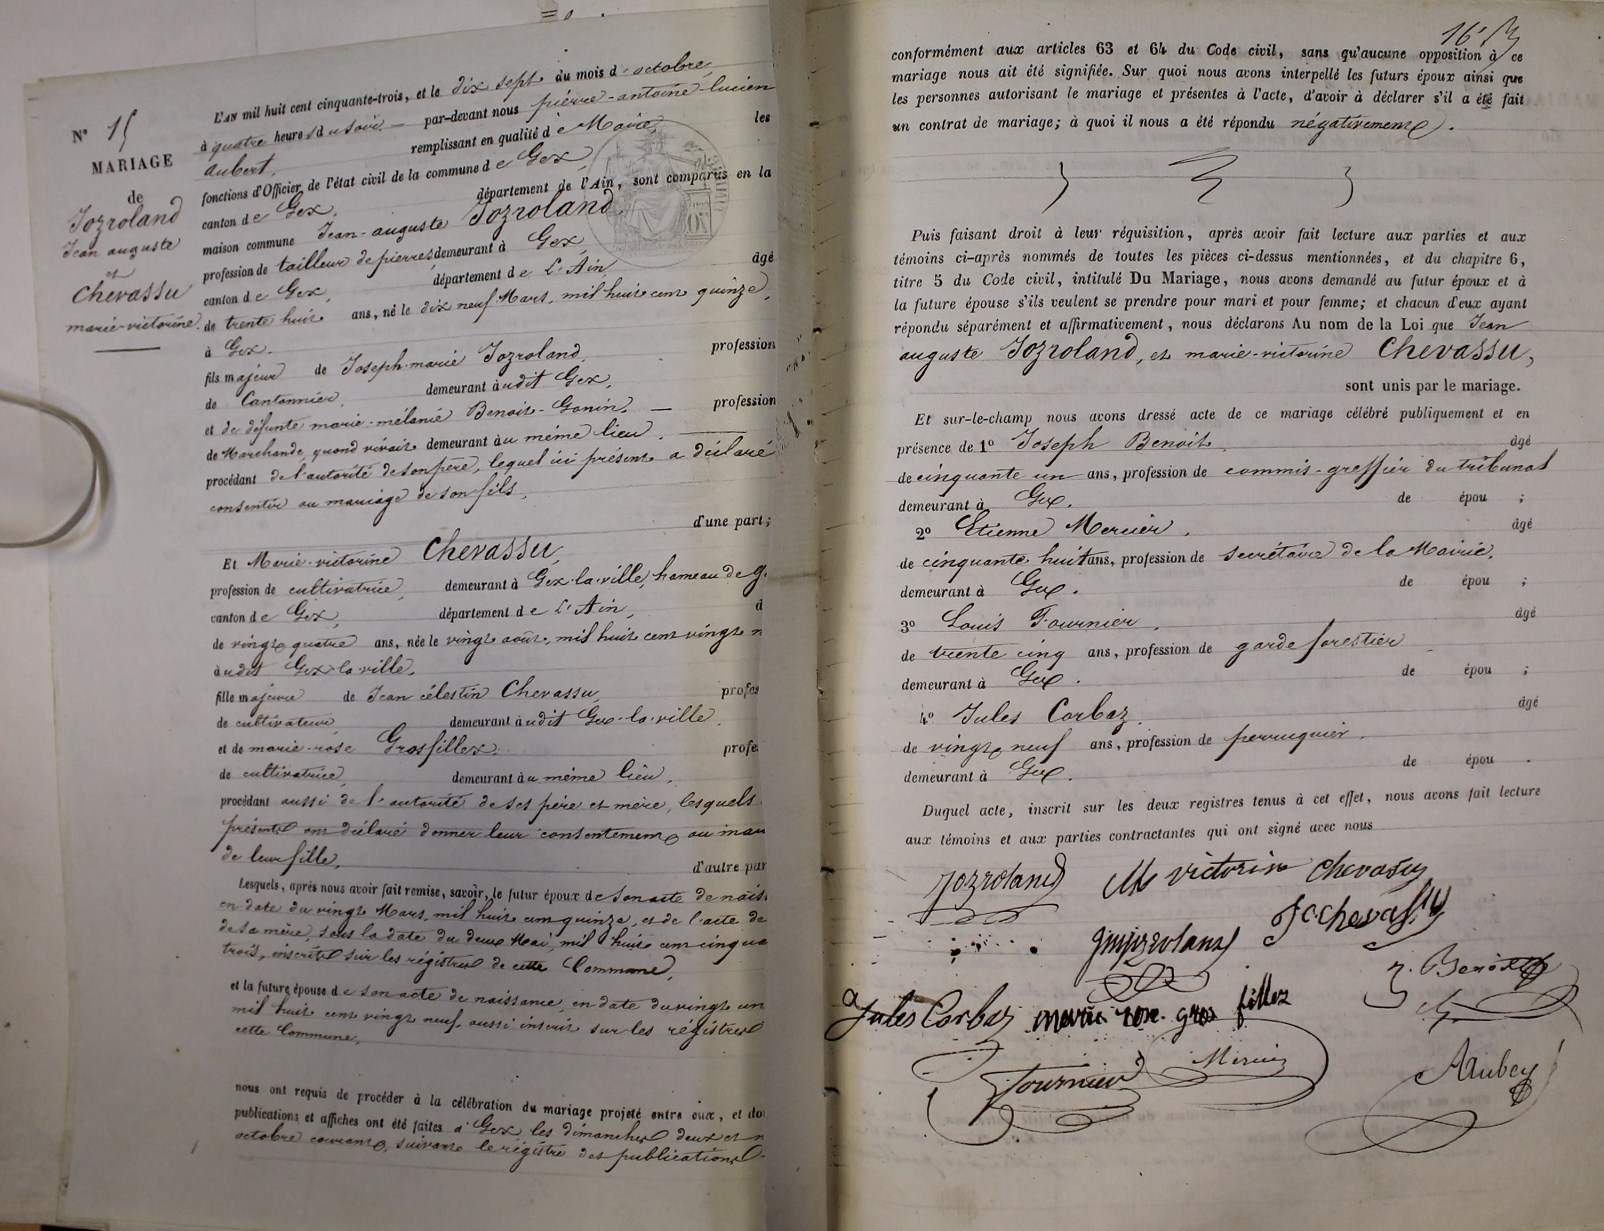 N° 15
MARIAGE
de
Jozroland
Jean auguste
et
Chevassu
marie-victorine.
L'AN mil huit cent cinquante-trois, et le dix sept du mois d'octobre,
à quatre heures du soir — par-devant nous pierre-antoine-lucien
aubert, remplissant en qualité de Maire, les
fonctions d'Officier de l'état civil de la commune de Gex,
canton de Gex, département de l'Ain, sont comparus en la
maison commune Jean-auguste Jozroland
profession de tailleur de pierres, demeurant à Gex,
canton de Gex, département de L'Ain, âgé
de trente huit ans, né le dix neuf Mars, mil huit cent quinze,
à Gex.
fils majeur de Joseph-marie Jozroland, profession
de Cantonnier, demeurant àudit Gex,
et de défunte marie-mélanie Benoit-Gonin, — profession
de Marchande, quand vivait demeurant àu même lieu.
procédant de l'autorité de son père, lequel ici présent a déclaré
consentir au mariage de son fils,
d'une part;
Et Marie-victorine Chevassu,
profession de cultivatrice, demeurant à Gex-la-ville, hameau de G.
canton de Gex, département de L'Ain,
de vingt quatre ans, née le vingt août, mil huit cent vingt n
àudit Gex-la-ville,
fille majeure de Jean célestin Chevassu profes
de cultivateur, demeurant àudit Gex-la-ville.
et de marie-rose Grosfillex, profe
de cultivatrice, demeurant àu même lieu,
procédant aussi de l'autorité de ses père et mère, lesquels
présents ont déclaré donner leur consentement au mar
de leur fille, d'autre par
Lesquels, après nous avoir fait remise, savoir, le futur époux de son acte de nais
en date du vingt Mars, mil huit cent quinze, et de l'acte de
de sa mère, sous la date du deux Mai, mil huit cent cinqua
trois, inscrits sur les régistres de cette Commune,
et la future épouse de son acte de naissance, en date du vingt un
mil huit cent vingt neuf, aussi inscrit sur les régistres
cette Commune,
nous ont requis de procéder à la célébration du mariage projeté entre eux, et do
publications et affiches ont été faites à Gex les dimanches deux et n
octobre courant, suivant le régistre des publications.
conformément aux articles 63 et 64 du Code civil, sans qu'aucune opposition à ce
mariage nous ait été signifiée. Sur quoi nous avons interpellé les futurs époux ainsi que
les personnes autorisant le mariage et présentes à l'acte, d'avoir à déclarer s'il a été fait
un contrat de mariage; à quoi il nous a été répondu négativement.
Puis faisant droit à leur réquisition, après avoir fait lecture aux parties et aux
témoins ci-après nommés de toutes les pièces ci-dessus mentionnées, et du chapitre 6,
titre 5 du Code civil, intitulé Du Mariage, nous avons demandé au futur époux et à
la future épouse s'ils veulent se prendre pour mari et pour femme; et chacun d'eux ayant
répondu séparément et affirmativement, nous déclarons Au nom de la Loi que Jean
auguste Jozroland, et marie-victorine Chevassu,
sont unis par le mariage.
Et sur-le-champ nous avons dressé acte de ce mariage célébré publiquement et en
présence de 1° Joseph Benoit, âgé
de cinquante un ans, profession de commis-greffier du tribunal
demeurant à Gex. de épou ;
2° Etienne Mercier, âgé
de cinquante huit ans, profession de secrétaire de la Mairie,
demeurant à Gex. de épou ;
3° Louis Fournier, âgé
de trente cinq ans, profession de garde forestier
demeurant à Gex. de épou ;
4° Jules Corbaz, âgé
de vingt neuf ans, profession de perruquier.
demeurant à Gex. de épou .
Duquel acte, inscrit sur les deux registres tenus à cet effet, nous avons fait lecture
aux témoins et aux parties contractantes qui ont signé avec nous
Jozroland M victorine chevassu
jmjozroland Jc chevassu
J. Benoit
Jules Corbaz marie rose gros fillex
Fournier Mercier
AAubert